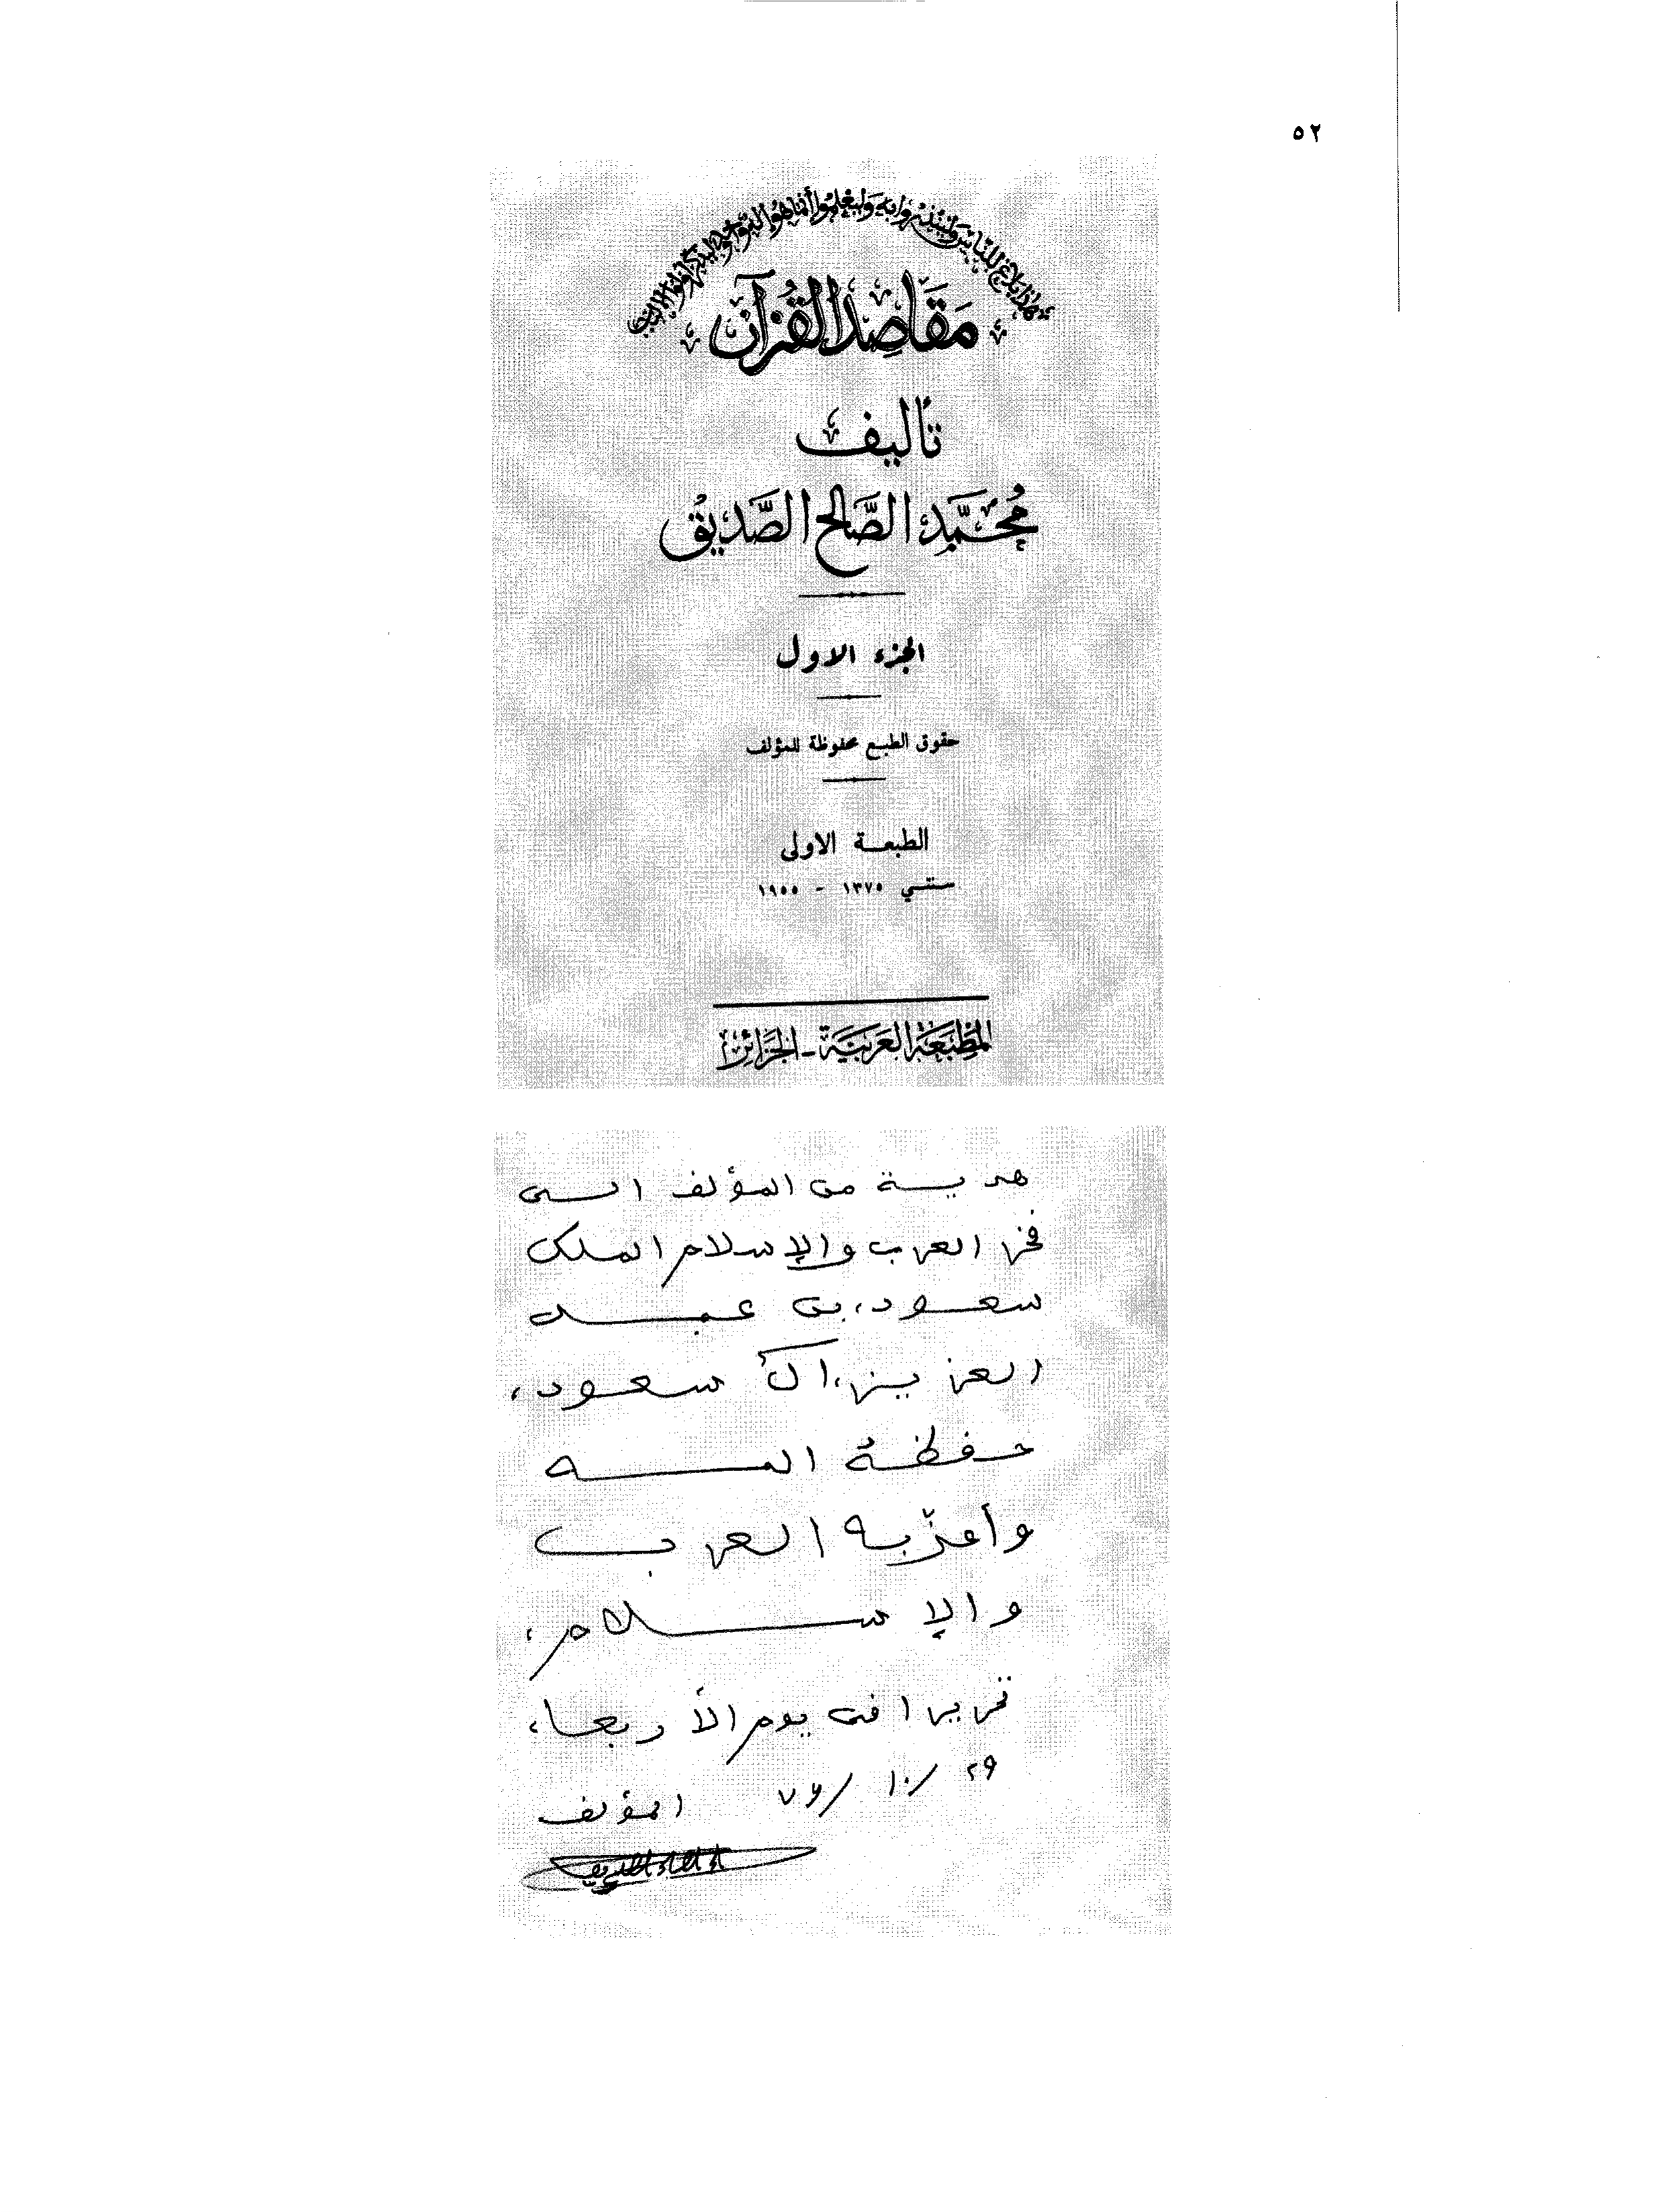 ٥٢
هذا بلاغ للناس ولينذروا به وليعلموا أنما هو إله واحد وليذكر أولوا الألباب
مَقَاصِد القُرآن
تأليف
مُحَمَّد الصَّالح الصَّدِيق
الجزء الاول
حقوق الطبع محفوظة للمؤلف
الطبعة الاولى
سنتي ١٣٧٥ - ١٩٥٥
المَطْبَعَة العَرَبيَّة - الجَزَائِر
هدية من المؤلف الى
فخر العرب والإسلام الملك
سعود، بن عبد
العزيز، آل سعود،
حفظه الله
وأعزّ به العرب
والإسلام،
تحريرا فى يوم الأربعاء
٢٩ / ١٠ / ٧٦ المؤلف